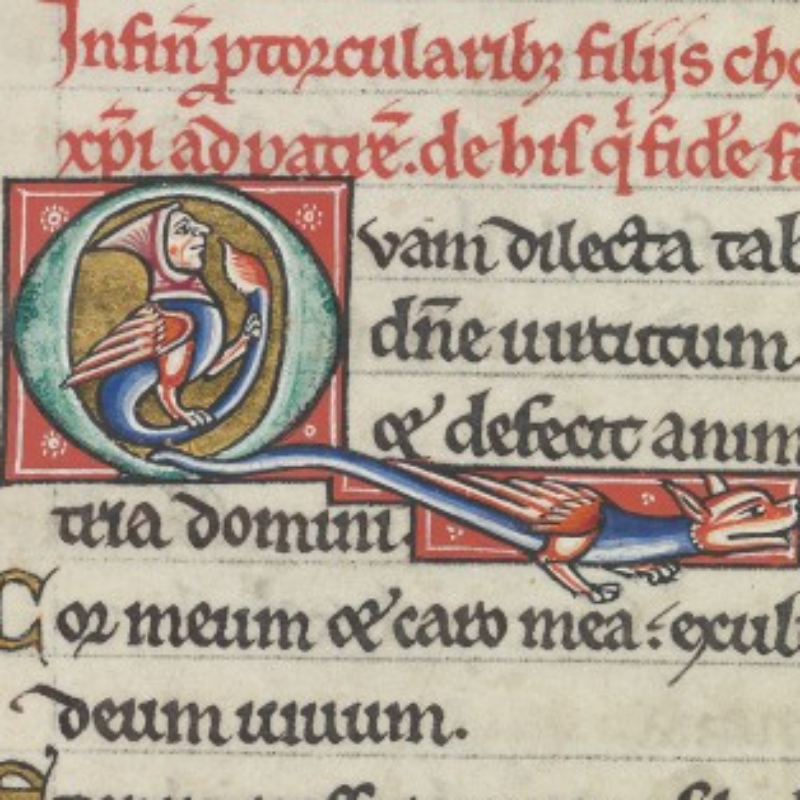 Infin̄ ptorcularibꝫ filijs cho
xp̄i ad patrē. de hiſ q̇ fide
Quam dilecta tab
dn̄e uirtutum
& defecit anim
tria domini.
Cor meum & caro mea: exul
deum uiuum.